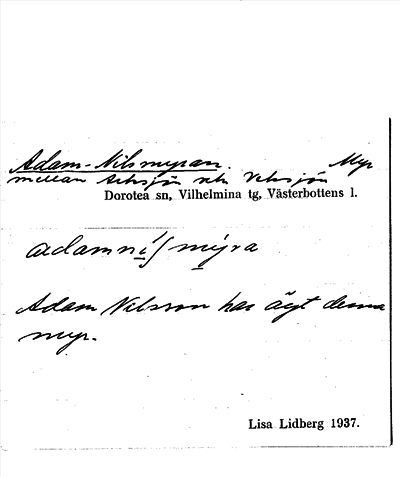 Adam-Nilsmyran. Myr
mellan och
Dorotea sn, Vilhelmina tg, Västerbottens l.
adamnìʃmỳra
Adam Nilsson har ägt denna
myr.
Lisa Lidberg 1937.